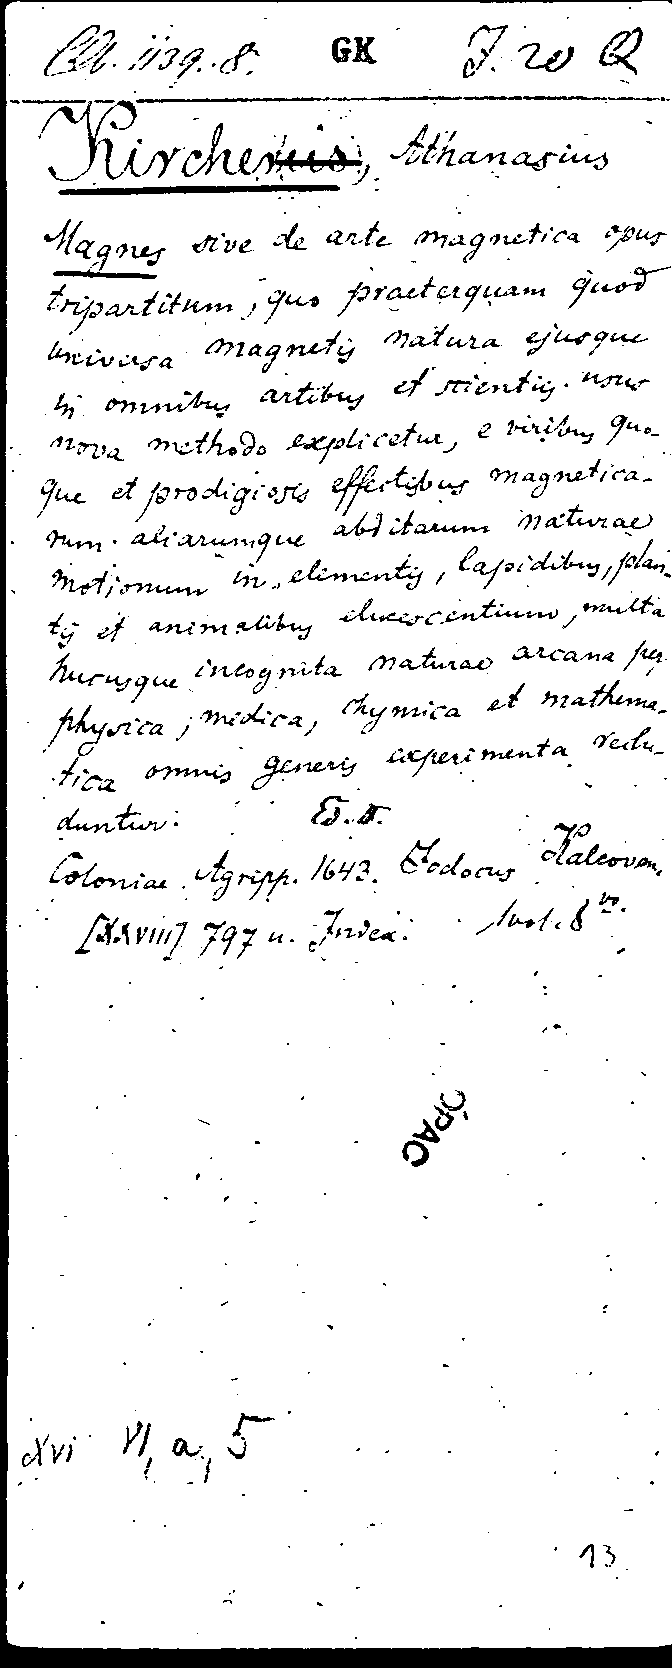 1139.8. GK J. 20 Q
Kircherus, Athanasius
Magnes sive de arte magnetica opus
tripartitum, quo praeterquam quod
universa magnetis natura ejusque
in omnibus artibus et scientijs usus
nova methodo explicetur, e viribus quo-
que et prodigiosis effectibus magnetica-
rum aliarumque abditarum naturae
motionum in elementis, lapidibus, plan-
tis et animalibus elucescentium, multa
hucusque incognita naturae arcana per
physica, medica, chymica et mathema-
tica omnis generis experimenta reclu-
duntur. Ed. II.
Coloniae Agripp. 1643. Jodocus Kalcoven.
[XXVIII] 797 u. Index. 1 vol. 8vo.
OPAC
XVI VI, a, 5
13